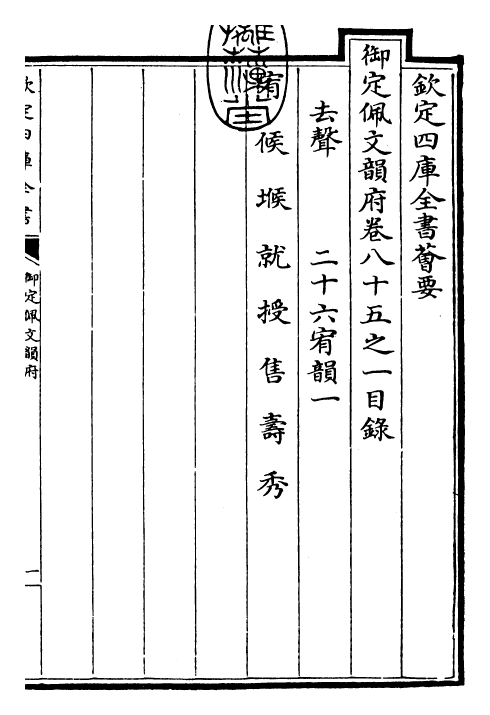 欽定四庫全書薈要
御定佩文韻府卷八十五之一目錄
去聲　二十六宥韻一
宥　候　堠　就　授　售　壽　秀
欽定四庫全書
御定佩文韻府
一